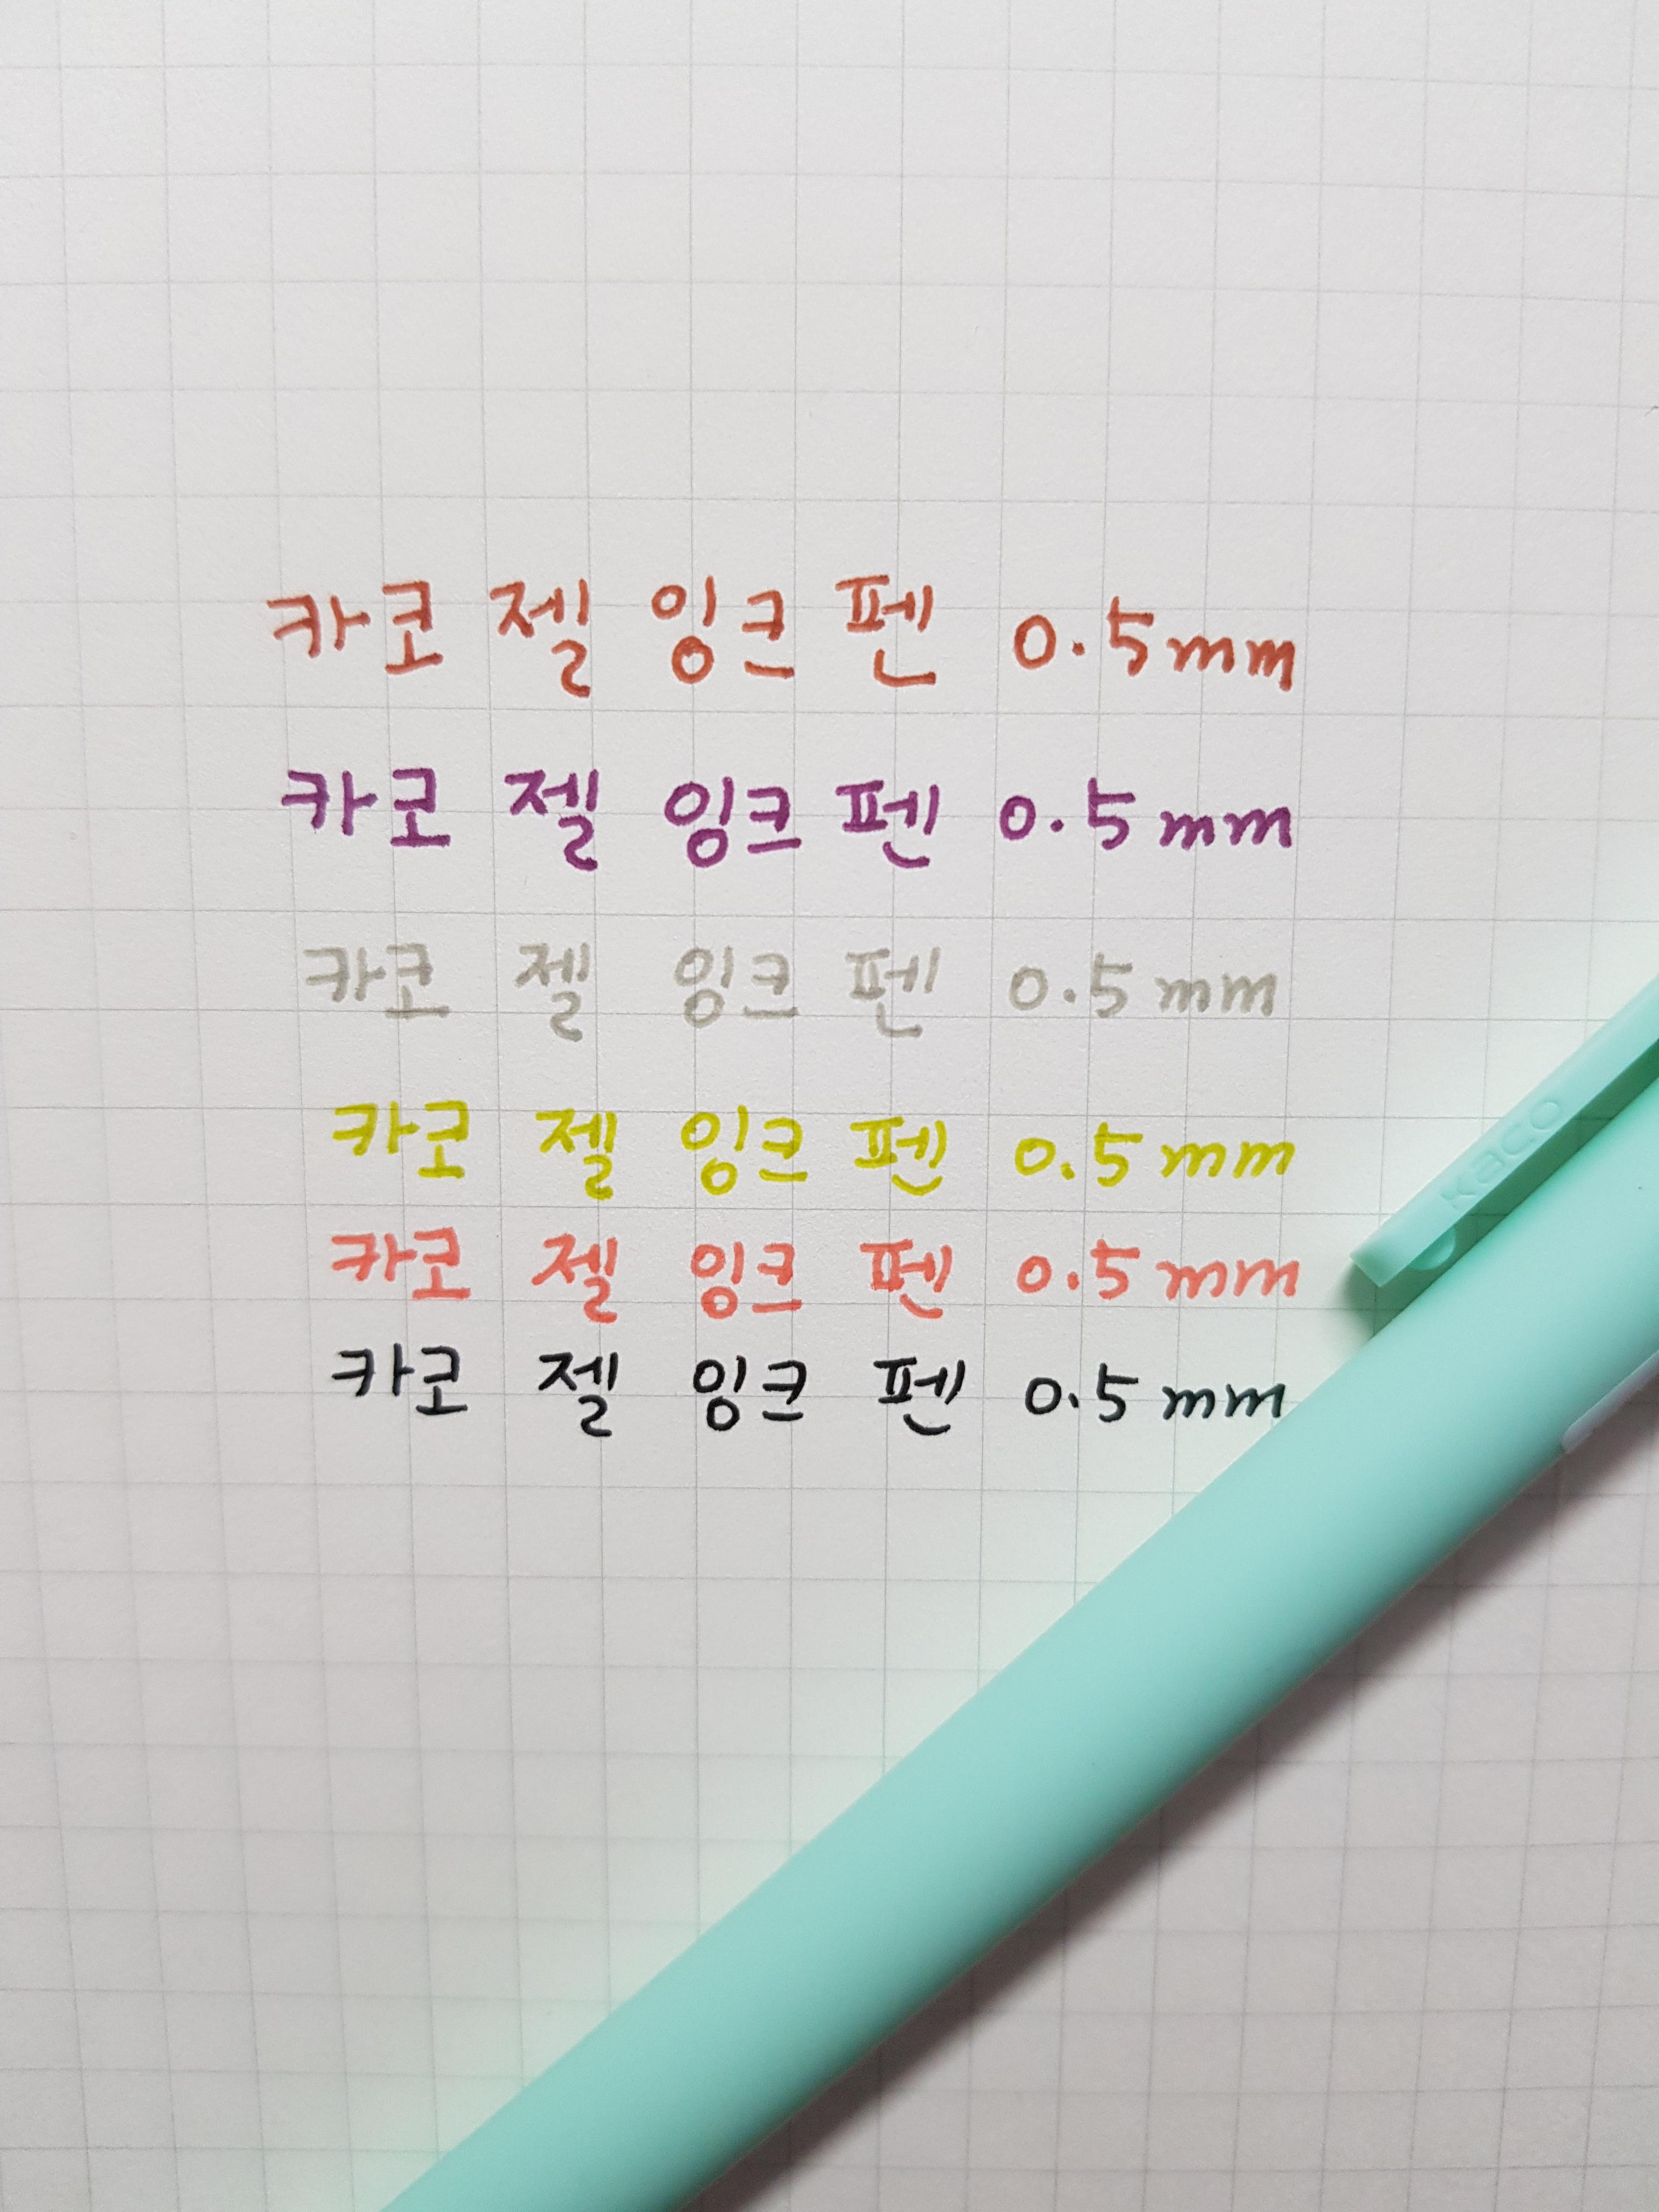 카코 젤 잉크 펜 0.5mm
카코 젤 잉크 펜 0.5mm
카코 젤 잉크 펜 0.5mm
카코 젤 잉크 펜 0.5mm
카코 젤 잉크 펜 0.5mm
카코 젤 잉크 펜 0.5mm
kaco